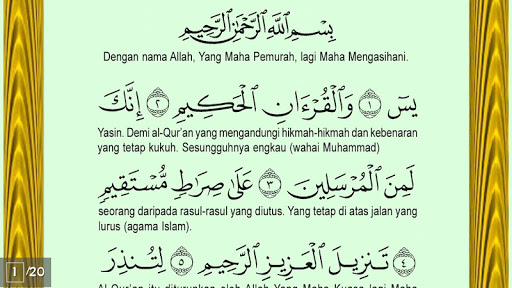 بِسْمِ اللَّهِ الرَّحْمَٰنِ الرَّحِيمِ
Dengan nama Allah, Yang Maha Pemurah, lagi Maha Mengasihani.
يسٓ ۝١ وَالْقُرْءَانِ الْحَكِيمِ ۝٢ إِنَّكَ
Yasin. Demi al-Qur'an yang mengandungi hikmah-hikmah dan kebenaran
yang tetap kukuh. Sesungguhnya engkau (wahai Muhammad)
لَمِنَ الْمُرْسَلِينَ ۝٣ عَلَىٰ صِرَاطٍ مُّسْتَقِيمٍ
seorang daripada rasul-rasul yang diutus. Yang tetap di atas jalan yang
lurus (agama Islam).
۝٤ تَنزِيلَ الْعَزِيزِ الرَّحِيمِ ۝٥ لِتُنذِرَ
Al-Qur'an itu diturunkan oleh Allah Yang Maha Kuasa lagi Maha
1 /20